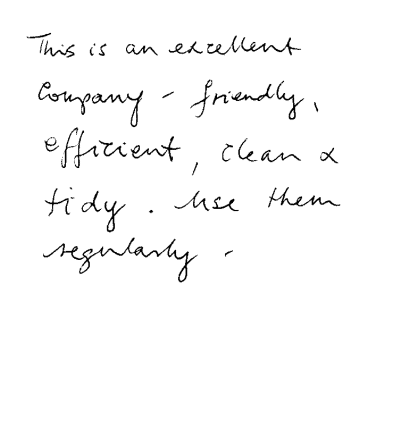 This is an excellent
Company - friendly,
efficient, clean &
tidy. Use them
regularly -